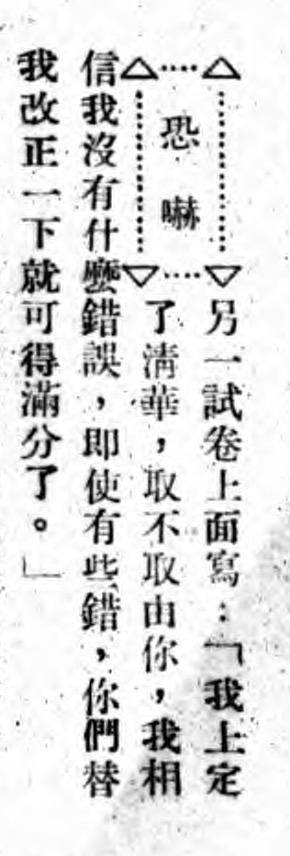 恐嚇
另一試卷上面寫：「我上定
了清華，取不取由你，我相
信我沒有什麼錯誤，即使有些錯，你們替
我改正一下就可得滿分了。」